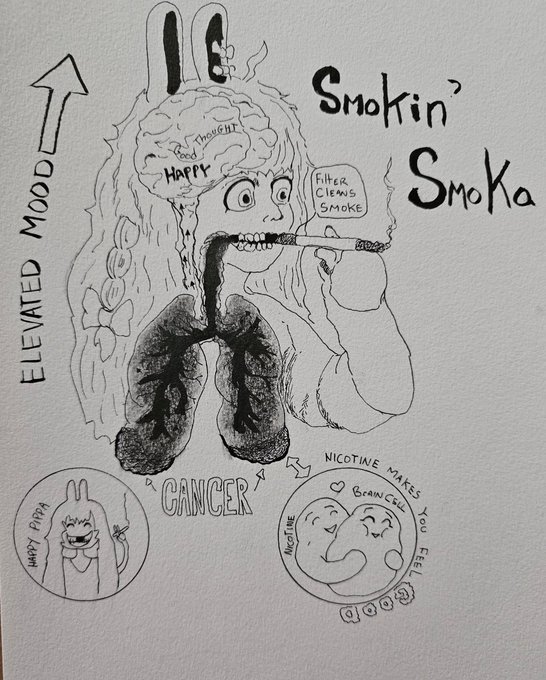 Smokin'
Smoka
ELEVATED MOOD
Good THOUGHT
HAPPY
Filter
CLEANS
SMOKE
CANCER
HAPPY PIPPA
NICOTINE MAKES YOU FEEL GOOD
NICOTINE
BRAIN CELL